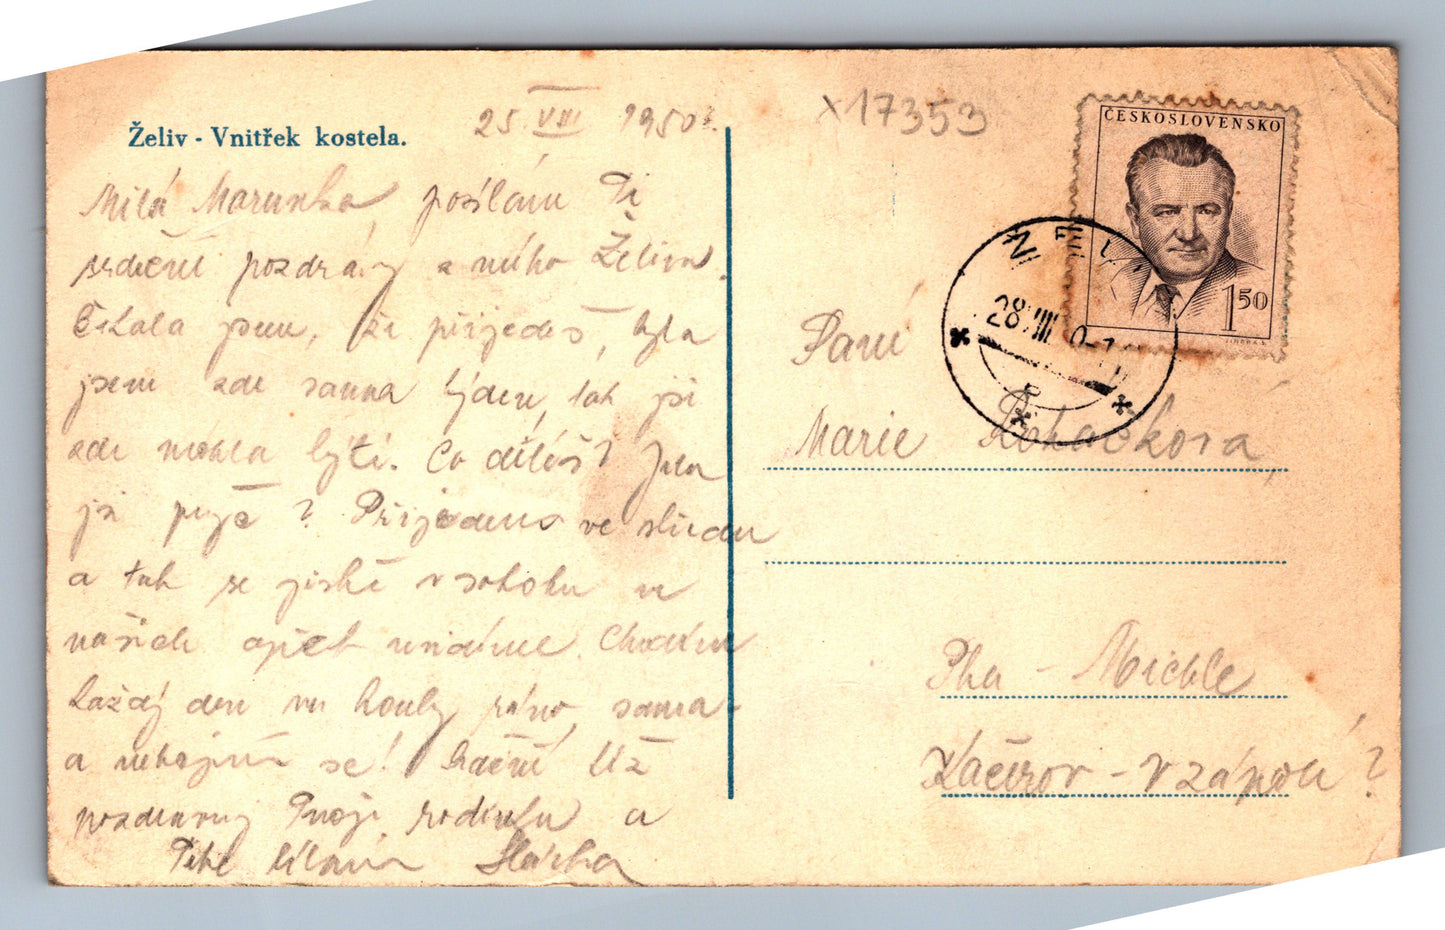 Želiv - Vnitřek kostela.
25 VIII 1950.
Milá Marunko, posílám Ti
srdečné pozdravy z mého Želiva.
Čekala jsem, že přijedeš, byla
jsem zde sama týden, tak jsi
zde mohla býti. Co děláš? Jela
jsi pryč? Přijedeme ve středu
a tak se jistě v sobotu ve
našich opět uvidíme. Chodím
každý den na houby ráno, sama
a nebojím se! Srdečně Už
pozdravuj Tvoji rodinku a
Tebe líbám Slávka
x17353
ČESKOSLOVENSKO
1 50
ŽELIV
28.VIII
Paní
Marie
Pha - Michle
Kačerov - v zápolí ?